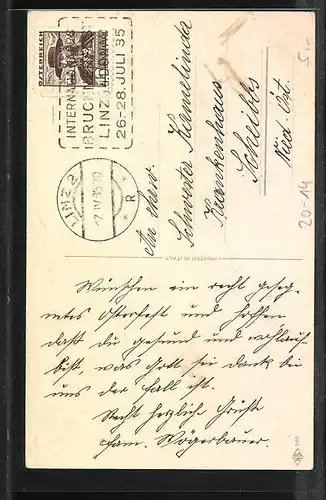 ÖSTERREICH
INTERNAT.
BRUCKNERFEST
LINZ a/DONAU
26.-28. JULI 35
LINZ 2
17.IV.35.19
* R *
An ehrw.
Schwester Karmelinda
Krankenhaus
Scheibbs
Nied. Öst.
5,-
20-14
PRINTED IN ITALY
Wünschen ein recht geseg-
netes Osterfest und hoffen
daß du gesund und wohlauf
bist, was Gott sei dank bei
uns der Fall ist.
Recht herzliche Grüße
Fam. Vögerbauer.